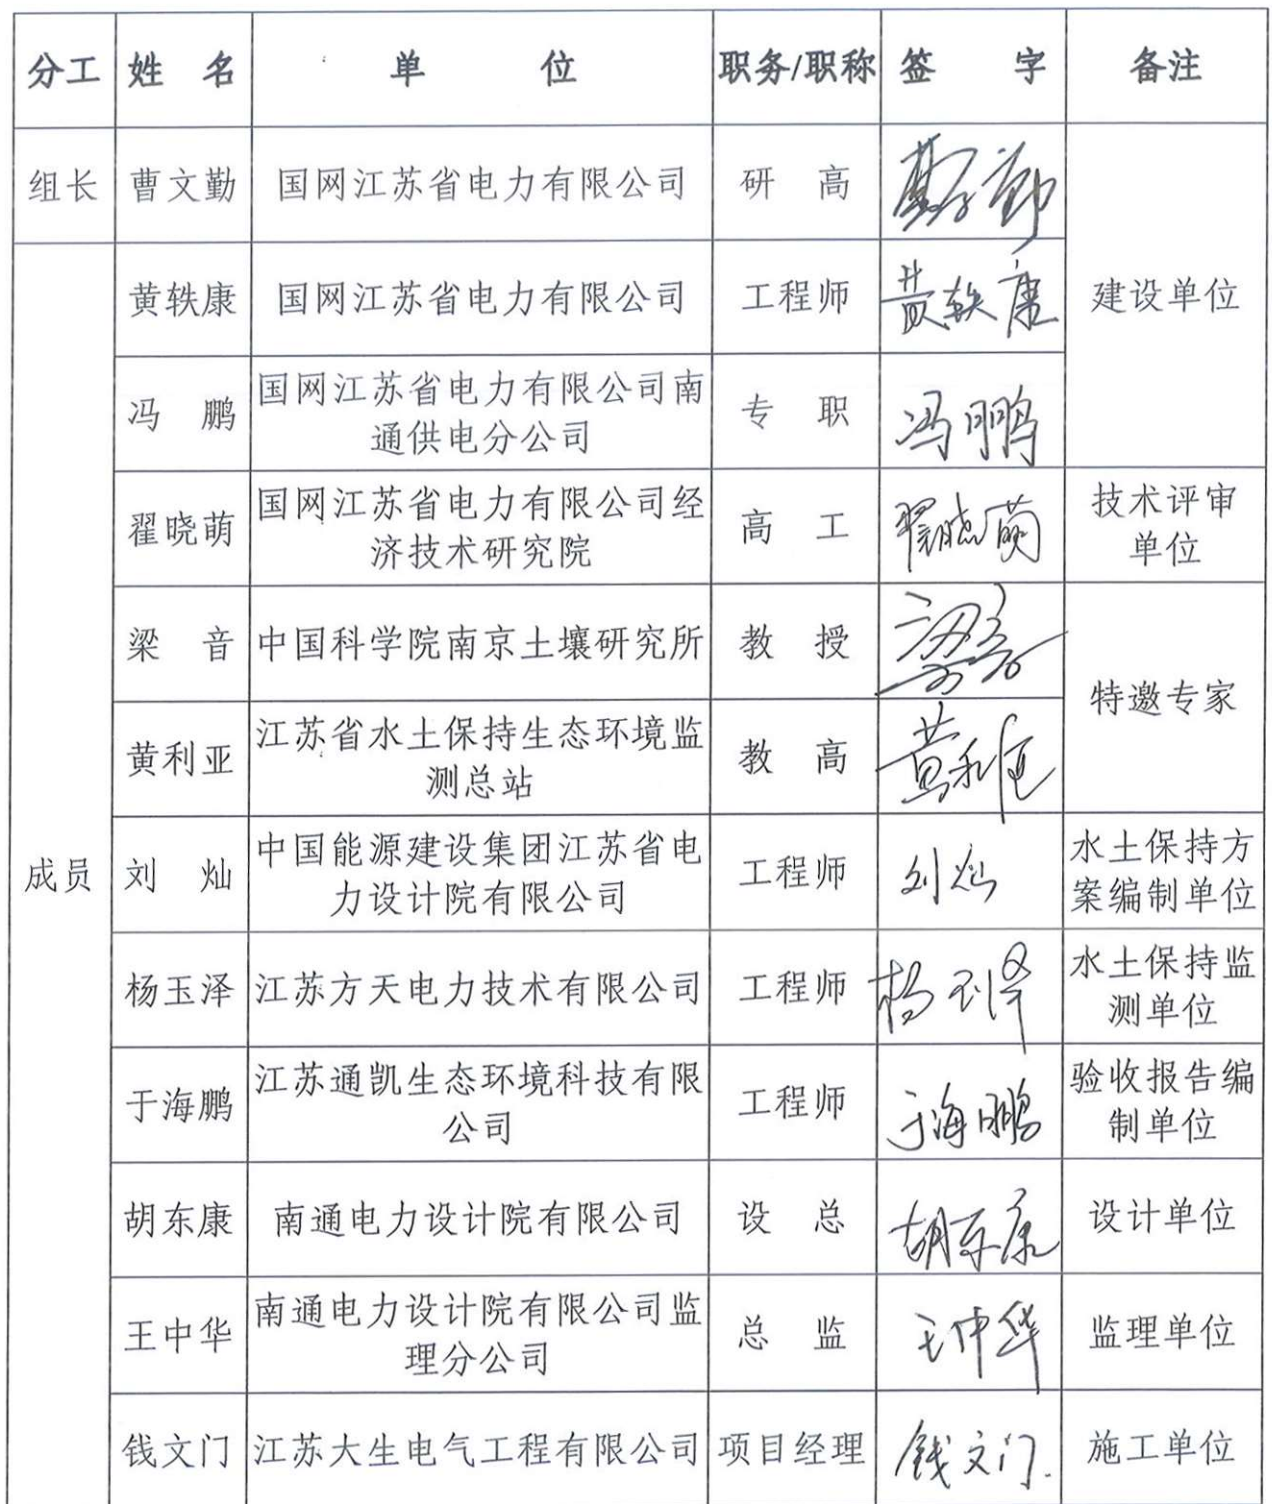 分工 姓 名 单 位 职务/职称 签 字 备注
组长 曹文勤 国网江苏省电力有限公司 研 高 曹文勤
黄轶康 国网江苏省电力有限公司 工程师 黄轶康 建设单位
冯 鹏 国网江苏省电力有限公司南
通供电分公司 专 职 冯鹏
翟晓萌 国网江苏省电力有限公司经
济技术研究院 高 工 翟晓萌 技术评审
单位
梁 音 中国科学院南京土壤研究所 教 授 梁音
特邀专家
黄利亚 江苏省水土保持生态环境监
测总站 教 高 黄利亚
成员 刘 灿 中国能源建设集团江苏省电
力设计院有限公司 工程师 刘灿 水土保持方
案编制单位
杨玉泽 江苏方天电力技术有限公司 工程师 杨玉泽 水土保持监
测单位
于海鹏 江苏通凯生态环境科技有限
公司 工程师 于海鹏 验收报告编
制单位
胡东康 南通电力设计院有限公司 设 总 胡东康 设计单位
王中华 南通电力设计院有限公司监
理分公司 总 监 王中华 监理单位
钱文门 江苏大生电气工程有限公司 项目经理 钱文门. 施工单位